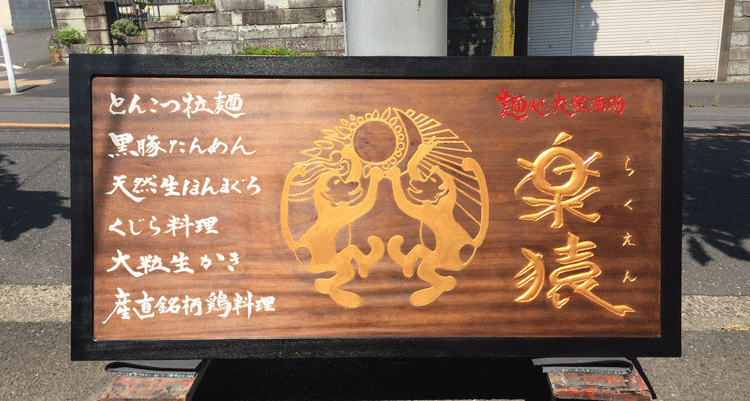 とんこつ拉麺
黒豚たんめん
天然生ほんまぐろ
くじら料理
大粒生かき
産直銘柄鶏料理
麺処 大衆酒場
楽猿
らくえん